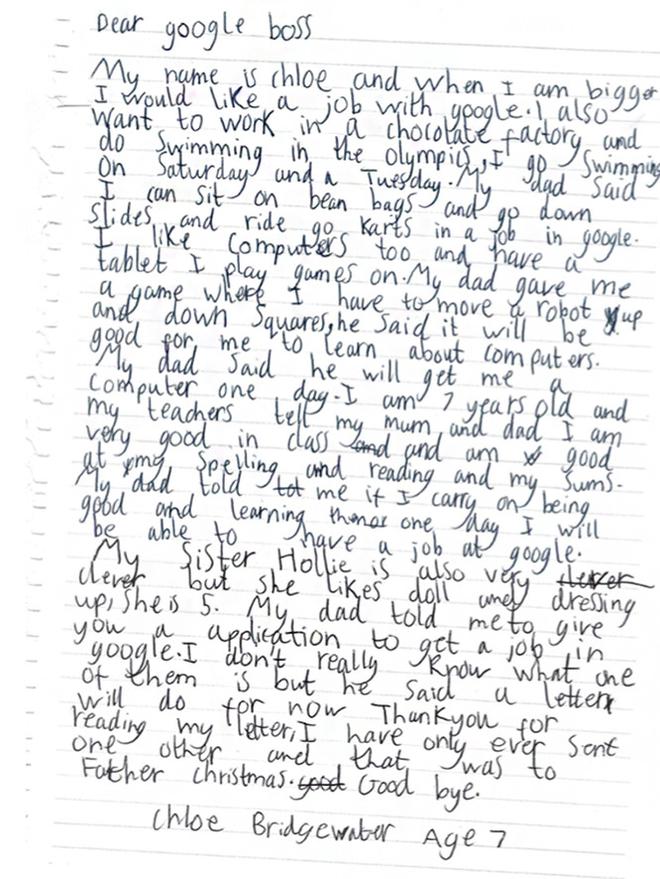 Dear google boss
My name is chloe and when I am bigger
I would like a job with google. I also
want to work in a chocolate factory and
do Swimming in the olympics, I go Swimming
on Saturday and a Tuesday. My dad said
I can sit on bean bags and go down
slides and ride go karts in a job in google.
I like computers too and have a
tablet I play games on. My dad gave me
a game where I have to move a robot up
and down squares, he said it will be
good for me to learn about computers.
My dad said he will get me a
computer one day. I am 7 years old and
my teachers tell my mum and dad I am
very good in class and and am good
at my spelling and reading and my sums.
My dad told me if I carry on being
good and learning one day I will
be able to have a job at google.
My Sister Hollie is also very clever
clever but she likes doll and dressing
up, she is 5. My dad told me to give
you a application to get a job in
google. I don't really know what one
of them is but he said a letter
will do for now Thankyou for
reading my letter, I have only ever sent
one other and that was to
Father christmas. good Good bye.
Chloe Bridgewater Age 7